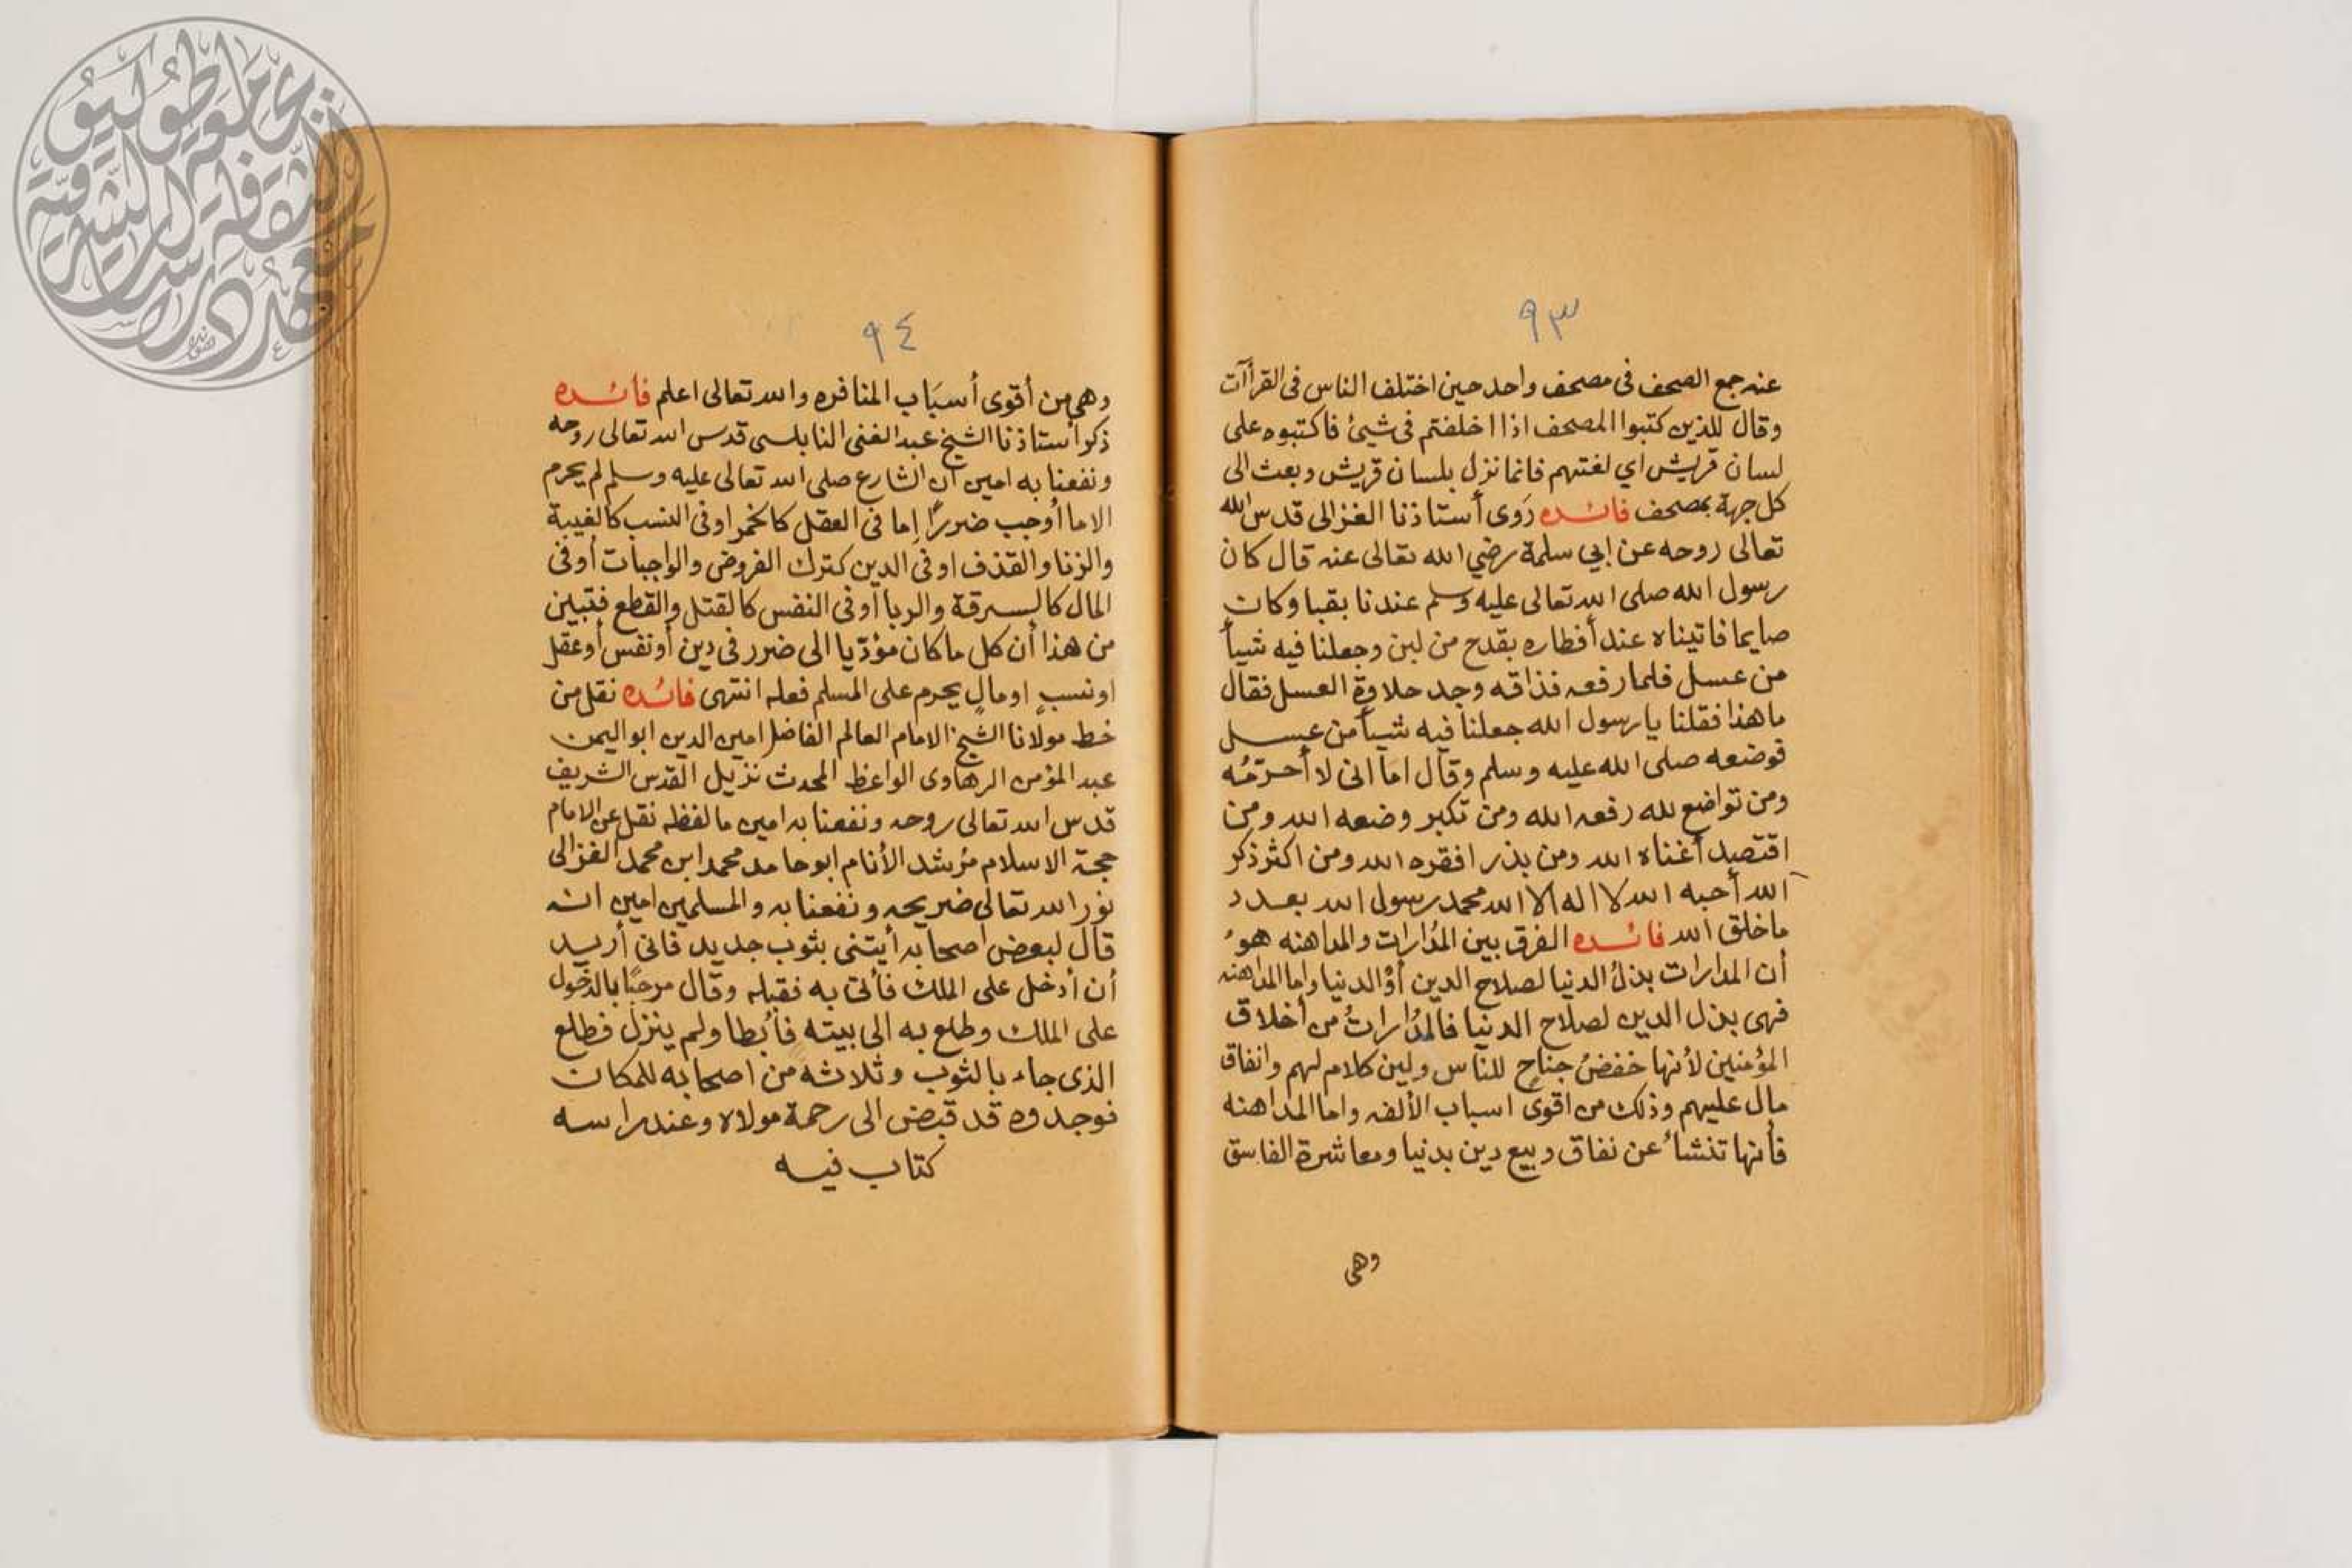 ٩٣
عنه جمع الصحف فى مصحف واحد حين اختلف الناس فى القراآت
وقال للذين كتبوا المصحف اذا اخلفتم فى شيئ فاكتبوه على
لسان قريش اي لغتهم فانما نزل بلسان قريش وبعث الى
كل جهة بمصحف فائده رَوى أستاذنا الغزالى قدس الله
تعالى روحه عن ابي سلمة رضي الله تعالى عنه قال كان
رسول الله صلى الله تعالى عليه وسلم عندنا بقبا وكان
صايما فاتيناه عند أفطاره بقدح من لبن وجعلنا فيه شيأ
من عسل فلما رفعه فذاقه وجد حلاوة العسل فقال
ما هذا فقلنا يا رسول الله جعلنا فيه شيأ من عسل
فوضعه صلى الله عليه وسلم وقال اما انى لا أحرّمُه
ومن تواضع لله رفعه الله ومن تكبر وضعه الله ومن
اقتصد أغناه الله ومن بذر افقره الله ومن اكثر ذكر
الله أحبه الله لا اله الا الله محمد رسول الله بعدد
ما خلق الله فائده الفرق بين المُدارات والمداهنه هوُ
أن المدارات بذلُ الدنيا لصلاح الدين أوُ الدنيا واما المداهنه
فهى بذل الدين لصلاح الدنيا فالمُداراتُ من أخلاق
المؤمنين لأنها خفضُ جناح للناس ولين كلام لهم وانفاق
مال عليهم وذلك من اقوى اسباب الألفه واما المداهنه
فأنها تنشأُ عن نفاق وبيع دين بدنيا ومعاشرة الفاسق
وهى
٩٤
وهى من أقوى أسبَاب المنافره والله تعالى اعلم فائده
ذكر أستاذنا الشيخ عبد الغنى النابلسى قدس الله تعالى روحه
ونفعنا به امين ان الشارع صلى الله تعالى عليه وسلم لم يحرم
الا ما أوجب ضررًا إما فى العقل كالخمر او فى النسب كالغيبة
والزنا والقذف او فى الدين كترك الفروض والواجبات أو فى
المال كالسرقة والربا أو فى النفس كالقتل والقطع فتبين
من هذا أن كل ما كان مؤدّيا الى ضرر فى دين أو نفس أو عقل
او نسبٍ او مالٍ يحرم على المسلم فعله انتهى فائده نقل من
خط مولانا الشيخ الامام العالم الفاضل امين الدين ابو اليمن
عبد المؤمن الرهاوى الواعظ المحدث نزيل القدس الشريف
قدس الله تعالى روحه ونفعنا به امين ما لفظه نقل عن الامام
حجة الاسلام مرُشد الأنام ابو حامد محمد ابن محمد الغزالى
نور الله تعالى ضريحه ونفعنا به والمسلمين امين انه
قال لبعض اصحابه أيتنى بثوب جديد فانى أريد
أن أدخل على الملك فأتى به فقبله وقال مرحبًا بالدخول
على الملك وطلع به الى بيته فأبطا ولم ينزل فطلع
الذى جاء بالثوب وثلاثه من اصحابه للمكان
فوجدوه قد قبض الى رحمة مولاه وعند راسه
كتاب فيه